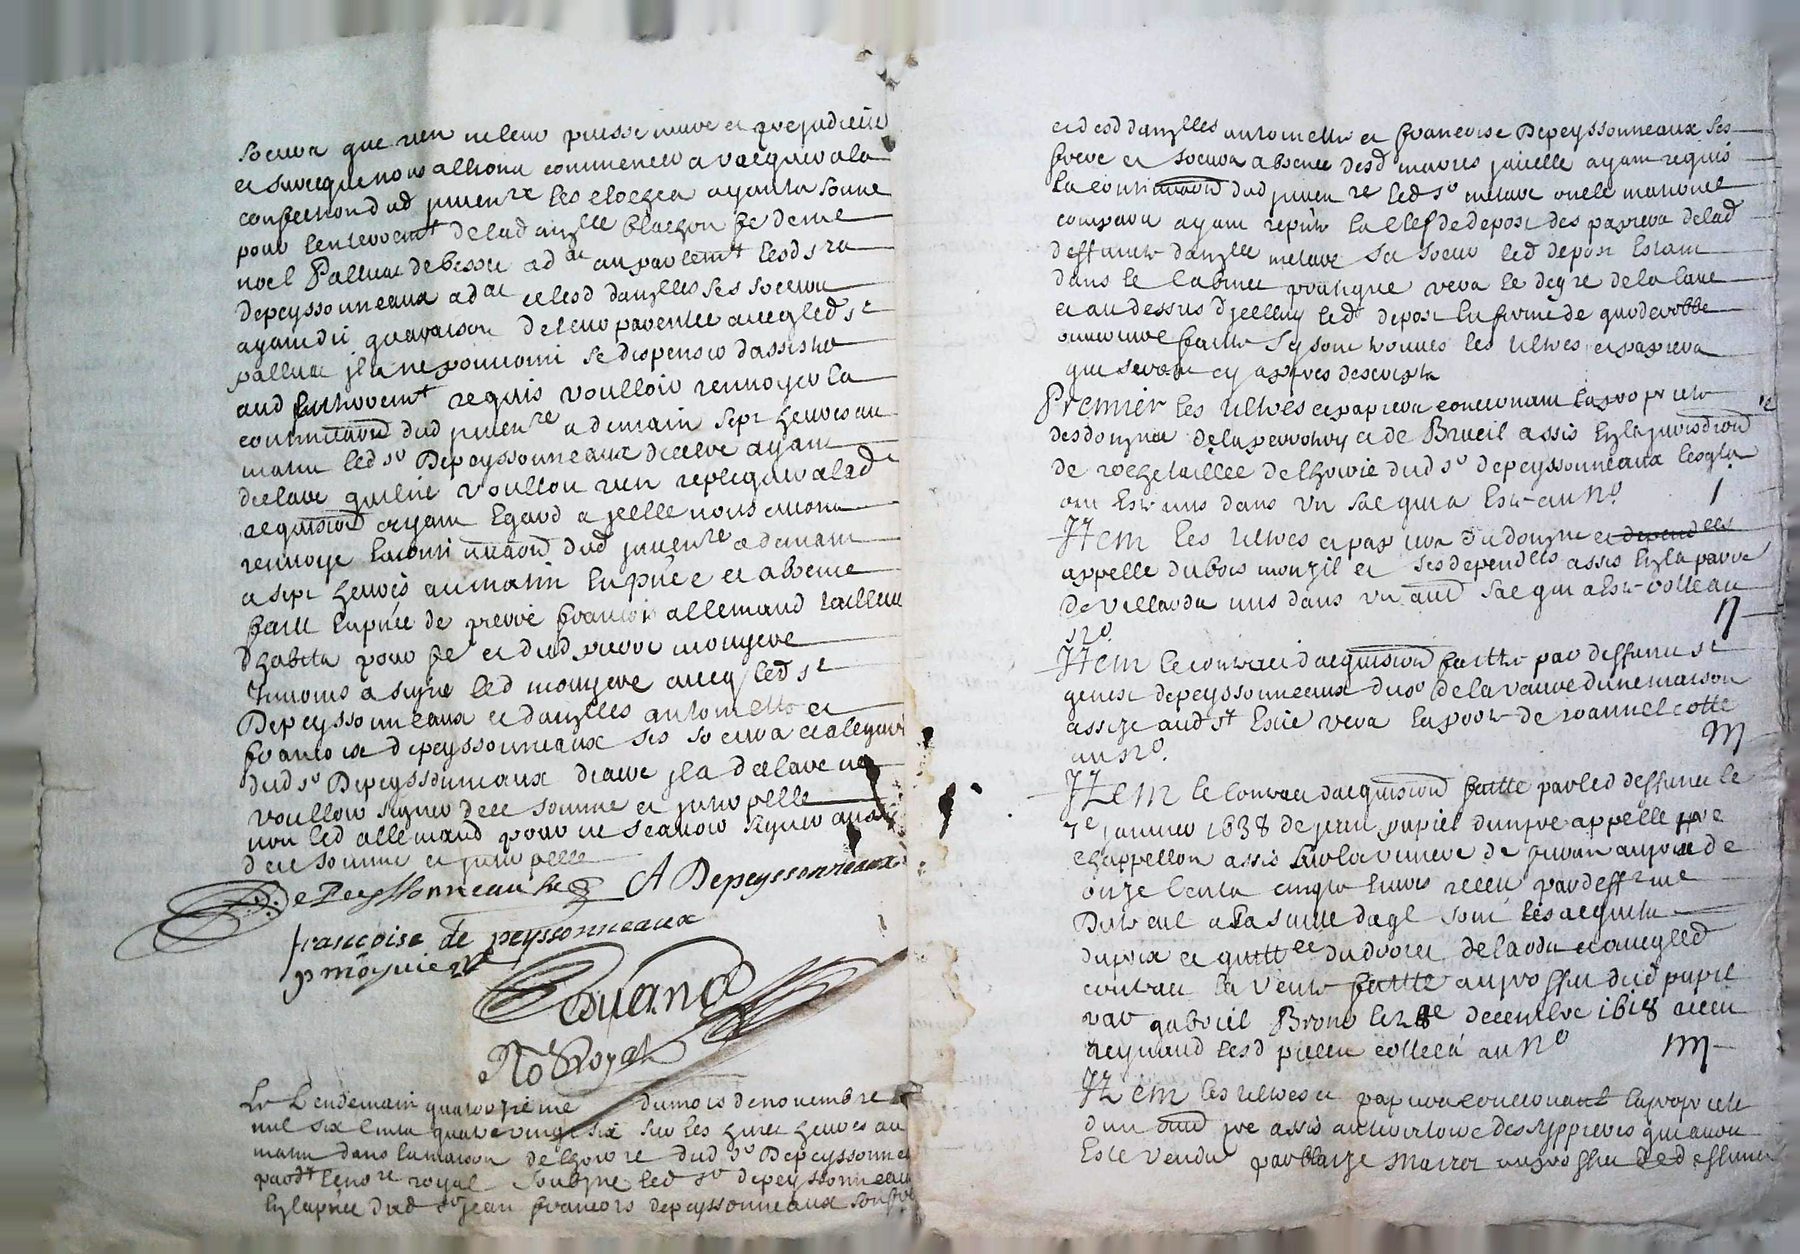 soeurs que rien ne leur puisse nuire et prejudicier
et sur ce que nous allions commencer a vacquer a la
confection dud inven.re les cloches ayants sonné
pour lenterrem.t de lad dam.lle Blachon fe de me
noel Palluat de besset ad.at au parlem.t lesd srs
depeyssonneaux ad.at et lesd dam.lles ses soeurs
ayant dit qua raison de leur parentée avecq led s.r
palluat ils ne pouvoint se dispenser dassister
aud enterrem.t requis voulloir renvoyer la
continuation dud inven.re a demain sept heures au
matin led s.r Depeyssonneaux diacre ayant
declaré quil ne voulloit rien repliquer a lad
requisition ayant Egard a jcelle nous avons
renvoyé la continuaon dud inven.re a demain
a sept heures au matin En pnce et absence
faict En pnce de pierre francois allemand tailleur
dhabits pour fe et dud pierre mouyere
tesmoins a signé led mouyere avecq led s.r
Depeyssonneaux et dam.lles antoinette et
francoise depeyssonneaux ses soeurs et a legard
dud s.r Depeyssonneaux diacre jl a declaré ne
voulloir signer de ce sommé et interpellé
non led allemand pour ne scavoir signer aussy
de ce sommé et interpellé
DePeyssonneaux A Depeyssonneaux
francoise de peyssonneaux
p moyuiere
Douland
No.re Royal
Le Lendemain quatorzieme du mois de novembre
mil six cents quatre vingt six sur les huict heures au
matin dans la maison de lhoirie dud s.r Depeyssonneaux
pard.t le no.re royal soubzne led s.r depeyssonneaux
En pnce dud s.r jean francois depeyssonneaux son frere
et desd dam.lles antoinette et francoise Depeyssonneaux ses
frere et soeurs absence desd mariés jaicelle ayant requis
la continuation dud inven.re led s.r melave oncle maternel
comparu ayant remis la clef de depost des papiers de lad
deffuncte dam.lle melave sa soeur led depost Estant
dans le Cabinet pratiqué vers le degre de la cave
et au dessus djcelluy led depost En forme de garderobbe
ouverture faitte sy sont trouvés les tiltres et papiers
qui seront cy apres descripts
Premier les tiltres et papiers concernant la proprieté
des domaines de la perrotiny et de Brueil assis En la jurisdiction
de rochetaillée de lhoirie dud s.r depeyssonneaux lesqls
ont Esté mis dans un sac qui a Esté cotté au N.o 1
Jtem les tiltres et papiers du domaine et
appellé du bois monzil et ses dependces assis En la parre
de villards mis dans un autre sac qui a Esté cotté au
N.o II
Jtem le contract dacquisition faitte par deffunct s.r
genest depeyssonneaux du s.r de la vaure dune maison
assize aud s.t Estienne vers la porte de roannel cotté
au N.o III
Jtem le contract dacquisition faitte par led deffunct le
7.e janvier 1638 de jean papiel dun pré appellé pré
chappellon assis sur la riviere de furan au prix de
onze cents cinqte livres receu par deffunct
Duteul a la suite daql sont les acquits
du prix et quitt.ce du droict de lads et avecq led
contract la vente faitte au proffit dud papiel
par gabriel Brono le 28.e decembre 1618 receu
reynaud lesd pieces cottées au N.o IIII
Jtem les tiltres et papiers concernant la proprieté
dun autre pré assis au territoire des Rypieres qui avoit
Esté vendu par blaize Mairet au proffit dud deffunct